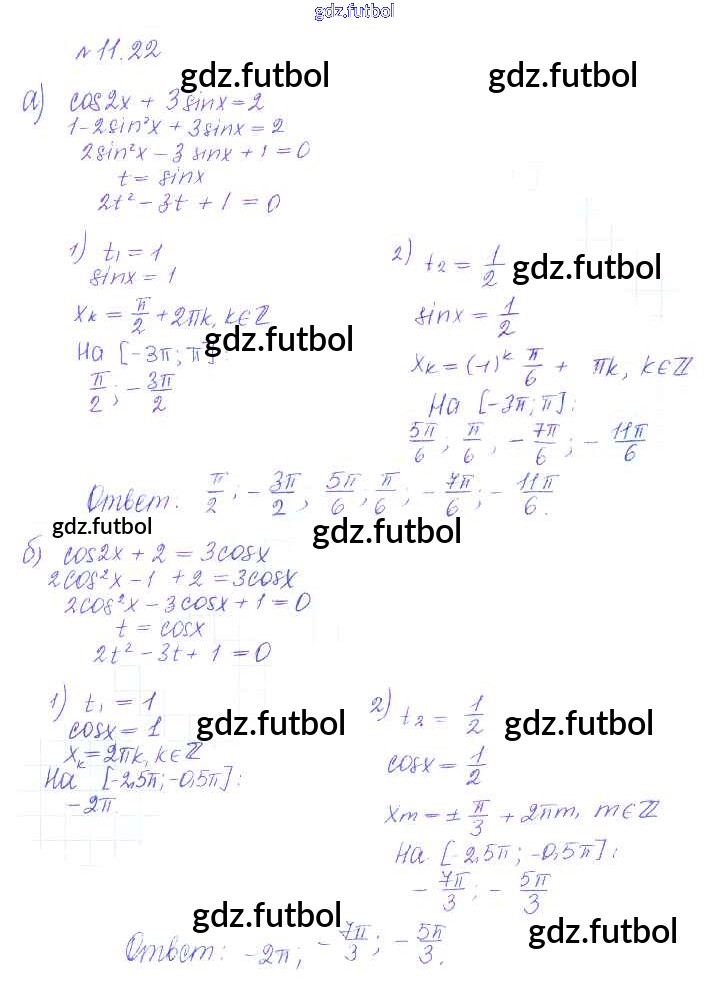 gdz.futbol
№ 11.22
gdz.futbol gdz.futbol
а) cos2x + 3sinx = 2
1-2sin²x + 3sinx = 2
2sin²x - 3 sinx + 1 = 0
t = sinx
2t² - 3t + 1 = 0
1) t₁ = 1
sinx = 1
xₖ = π/2 + 2πk, k∈ℤ
gdz.futbol
На [-3π; π]:
π/2; -3π/2
2) t₂ = 1/2
gdz.futbol
sinx = 1/2
xₖ = (-1)ᵏ π/6 + πk, k∈ℤ
На [-3π; π]:
5π/6; π/6; -7π/6; -11π/6
Ответ: π/2; -3π/2; 5π/6; π/6; -7π/6; -11π/6.
gdz.futbol gdz.futbol
б) cos2x + 2 = 3cosx
2cos²x - 1 + 2 = 3cosx
2cos²x - 3cosx + 1 = 0
t = cosx
2t² - 3t + 1 = 0
1) t₁ = 1
cosx = 1
gdz.futbol
xₖ = 2πk, k∈ℤ
На [-2,5π; -0,5π]:
-2π.
2) t₂ = 1/2
gdz.futbol
cosx = 1/2
xm = ± π/3 + 2πm, m∈ℤ
На [-2,5π; -0,5π]:
-7π/3; -5π/3
gdz.futbol gdz.futbol
Ответ: -2π; -7π/3; -5π/3.